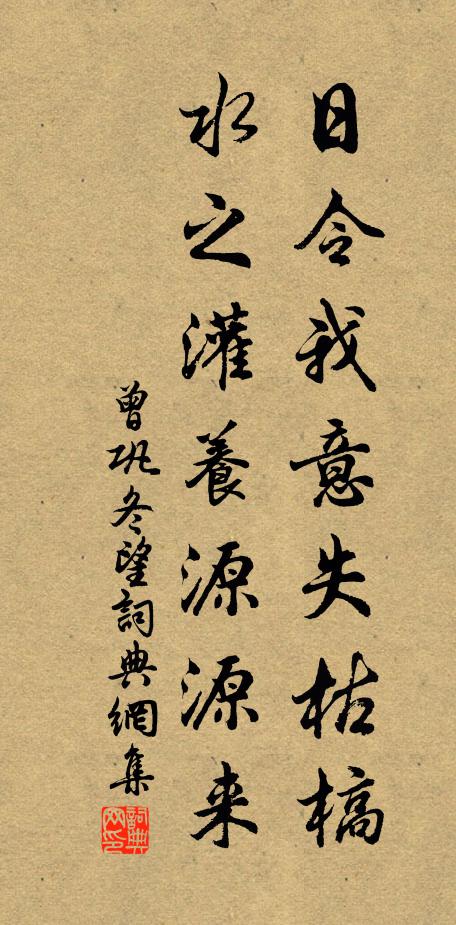 日令我意失枯槁
水之灌養源源来
曾巩冬望詞典網集
詞典網印